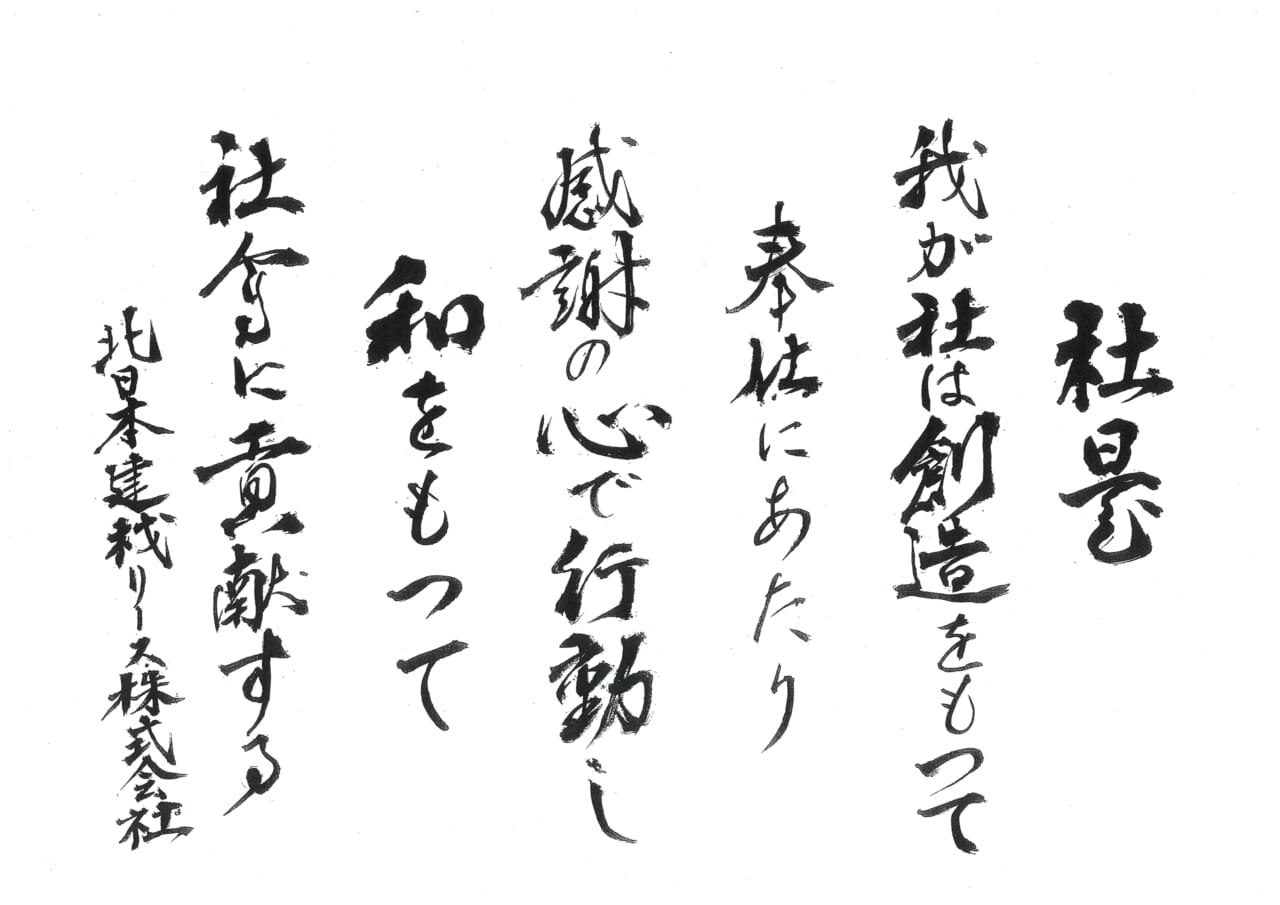 社是
我が社は創造をもつて
奉仕にあたり
感謝の心で行動し
和をもつて
社会に貢献する
北日本建材リース株式会社